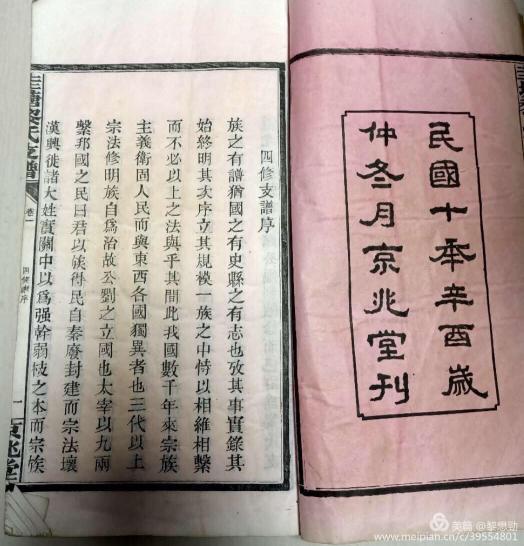 民國十年辛酉歲
仲冬月京兆堂刊
四修支譜序
族之有譜猶國之有史縣之有志也攷其事實錄其
始終明其次序立其規模一族之中恃以相維相繫
而不必以上之法與乎其間此我國數千年來宗族
主義衛固人民而與東西各國獨異者也三代以上
宗法修明族自為治故公劉之立國也太宰以九兩
繫邦國之民曰君以族得民自秦廢封建而宗法壞
漢興徙諸大姓實關中以為强幹弱枝之本而宗族
黎氏支譜
卷一
四修支序
一
京兆堂
美篇 @黎思勁
www.meipian.cn/c/39554801